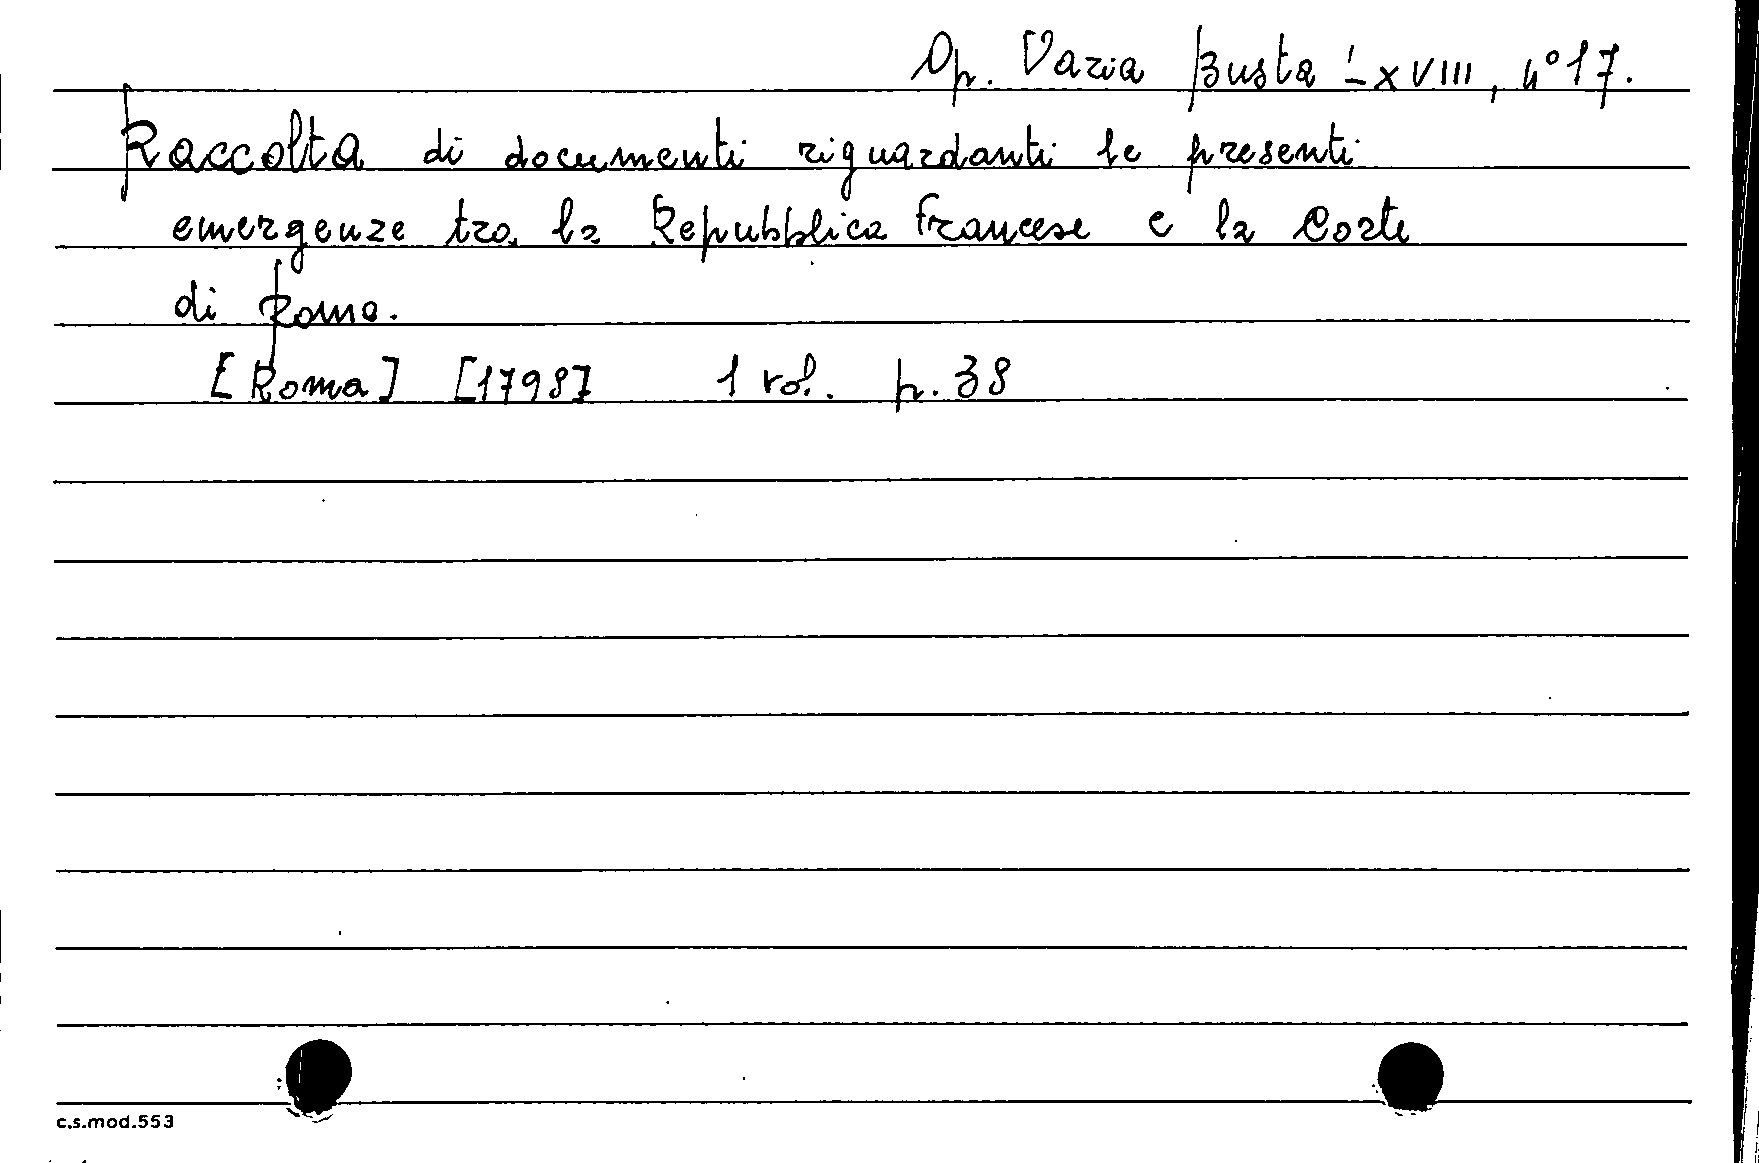 Op. Varia Busta LXVIII, n° 17.
Raccolta di documenti riguardanti le presenti
emergenze tra la Repubblica Francese e la Corte
di Roma.
[Roma] [1798] 1 vol. p. 38
c.s.mod.553